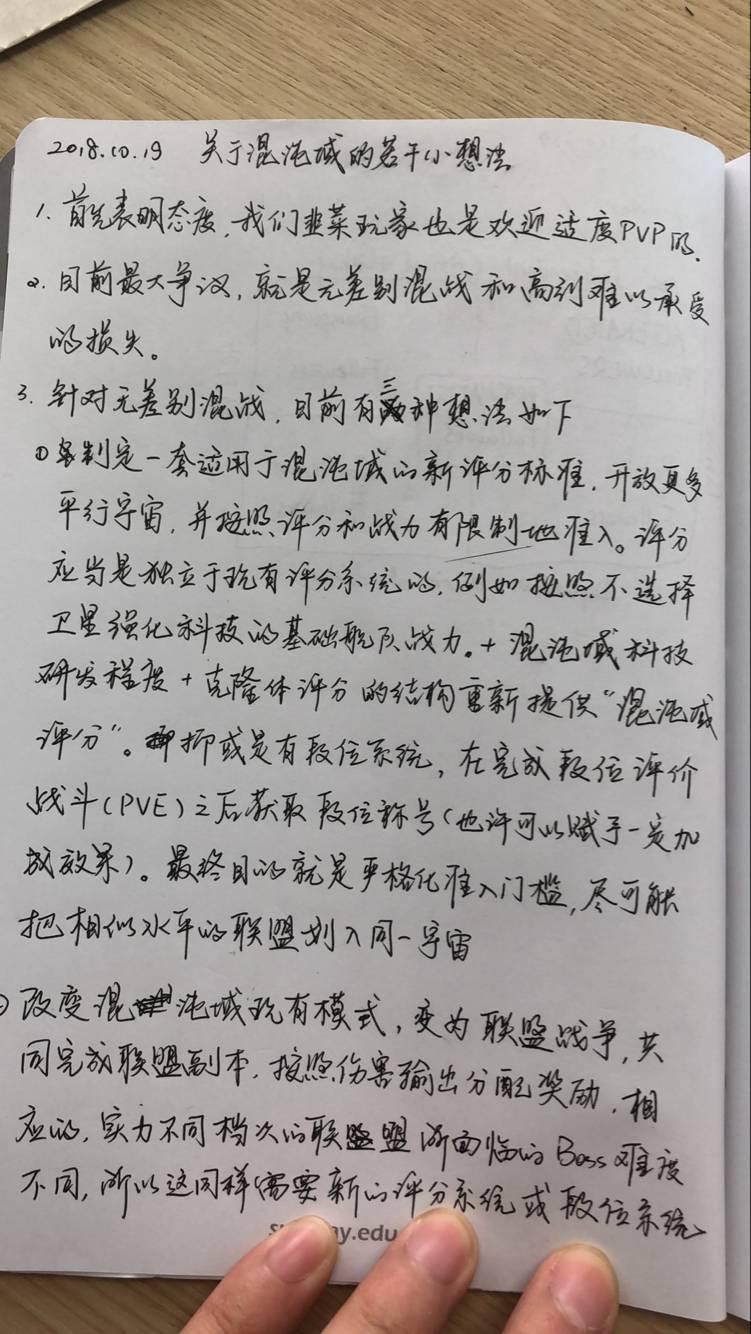 2018.10.19 关于混沌域的若干小想法
1. 首先表明态度,我们韭菜玩家也是欢迎适度PVP的.
2. 目前最大争议,就是无差别混战和高到难以承受
的损失。
3. 针对无差别混战,目前有三种想法如下
①制定一套适用于混沌域的新评分标准,开放更多
平行宇宙,并按照评分和战力有限制地准入。评分
应当是独立于现有评分系统的,例如按照不选择
卫星强化科技的基础舰队战力。+混沌域科技
研发程度+克隆体评分的结构重新提供“混沌域
评分”。抑或是有段位系统,在完成段位评价
战斗(PVE)之后获取段位称号(也许可以赋予一定加
成效果)。最终目的就是严格化准入门槛,尽可能
把相似水平的联盟划入同一宇宙
改变混沌域现有模式,变为联盟战争,共
同完成联盟副本,按照伤害输出分配奖励,相
应的,实力不同档次的联盟所面临的Boss难度
不同,所以这同样需要新的评分系统或段位系统
ay.edu